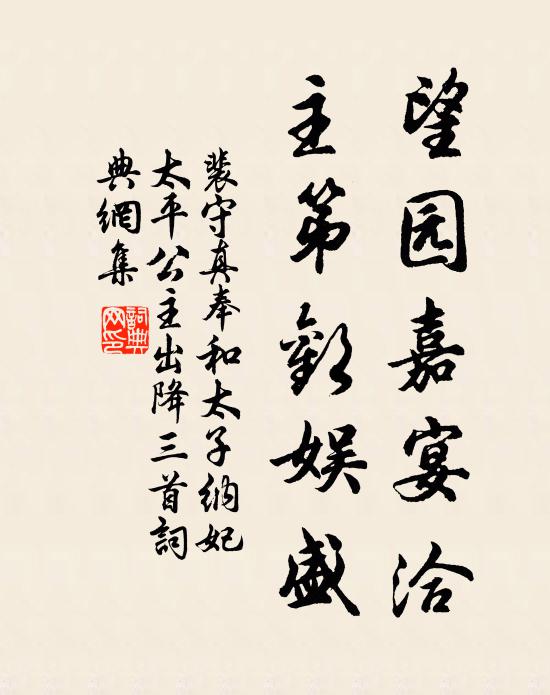 望园嘉宴洽
主第歡娱盛
裴守真奉和太子纳妃
太平公主出降三首詞
典網集
詞典网印